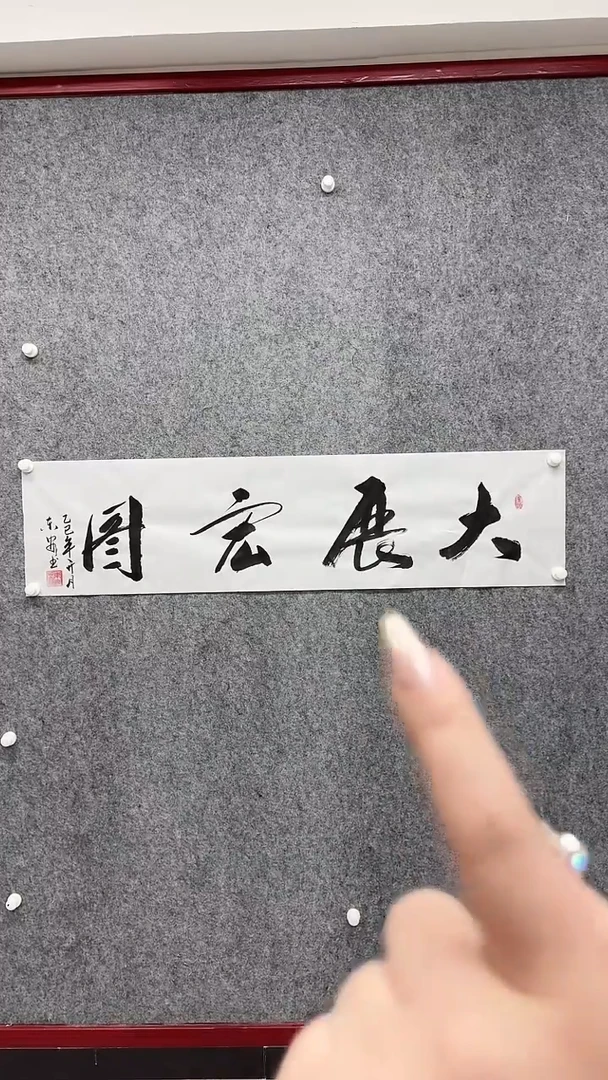 大展宏图
乙巳年六月
东昌书